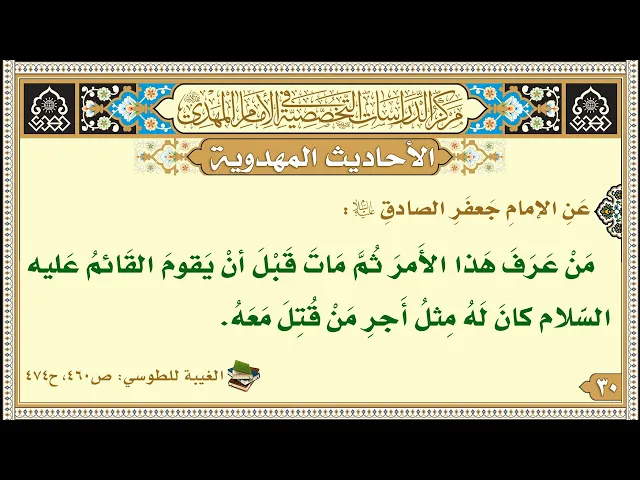 مركز الدراسات التخصصية في الإمام المهدي
الأحاديث المهدوية
عَنِ الإمامِ جَعفَرِ الصادقِ :
مَنْ عَرَفَ هَذا الأَمرَ ثُمَّ مَاتَ قَبْلَ أنْ يَقومَ القَائمُ عَليه
السّلام كانَ لَهُ مِثلُ أَجرِ مَنْ قُتِلَ مَعَهُ.
الغيبة للطوسي: ص٤٦٠، ح٤٧٤
٣٠